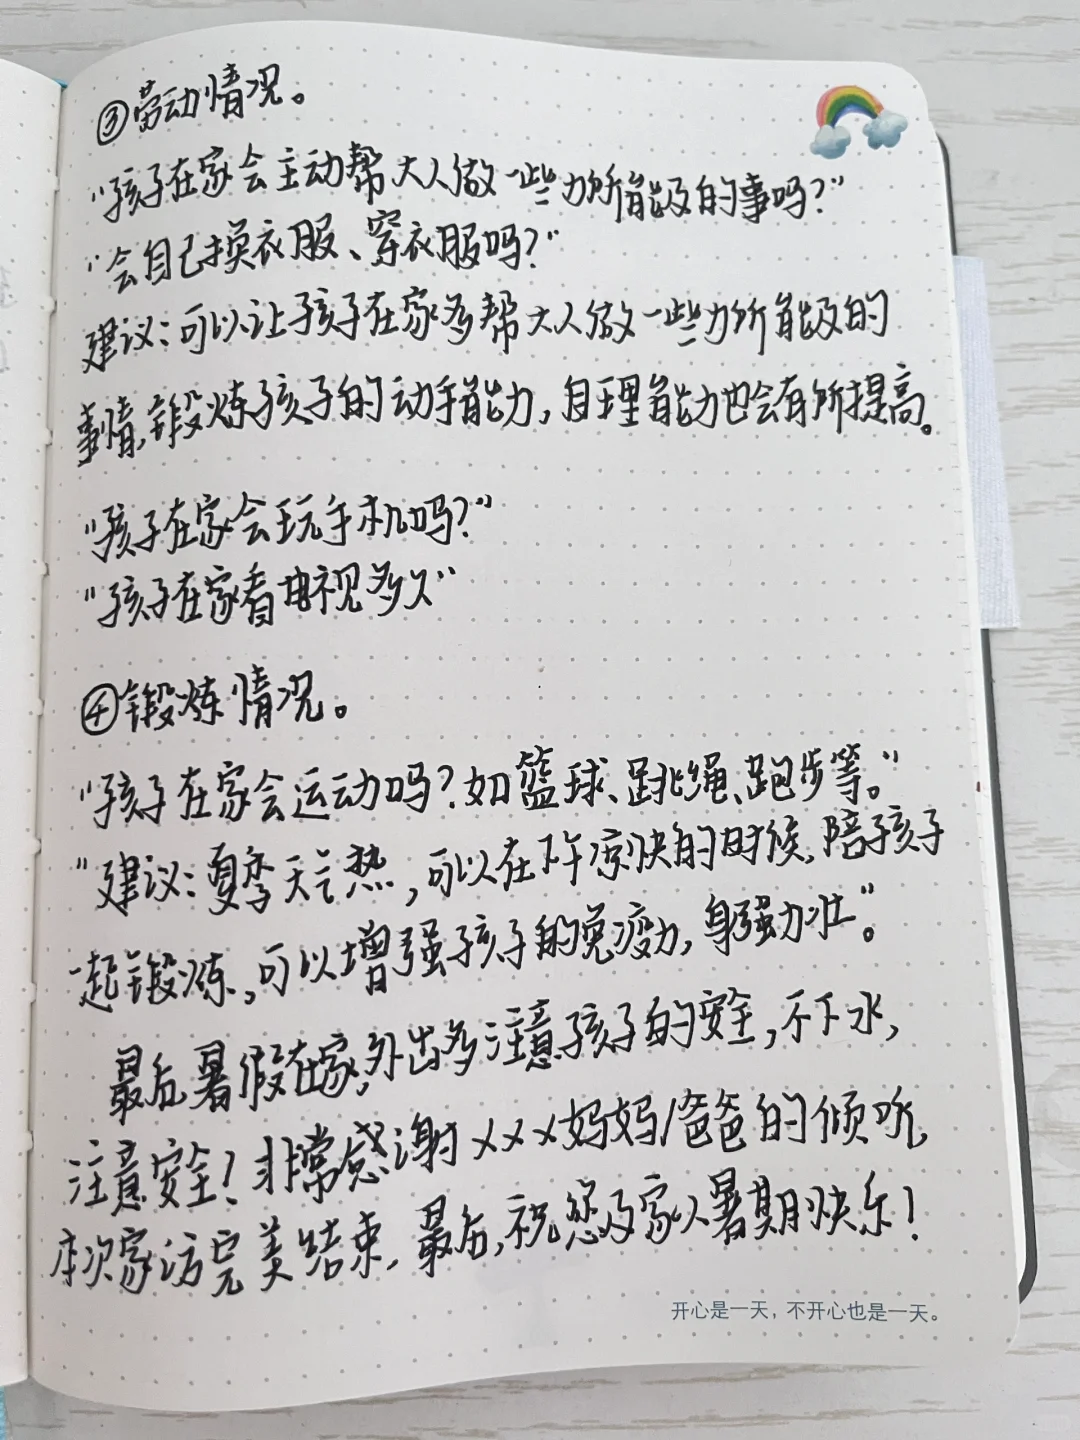 ③劳动情况。
“孩子在家会主动帮大人做一些力所能及的事吗？”
“会自己换衣服、穿衣服吗？”
建议：可以让孩子在家多帮大人做一些力所能及的
事情，锻炼孩子的动手能力，自理能力也会有所提高。
“孩子在家会玩手机吗？”
“孩子在家看电视多久”
④锻炼情况。
“孩子在家会运动吗？如篮球、跳绳、跑步等。”
“建议：夏季天气热，可以在下午凉快的时候，陪孩子
一起锻炼，可以增强孩子的免疫力，身强力壮”。
最后暑假在家，外出多注意孩子的安全，不下水，
注意安全！非常感谢×××妈妈/爸爸的倾听，
本次家访完美结束。最后，祝您及家人暑期快乐！
开心是一天，不开心也是一天。